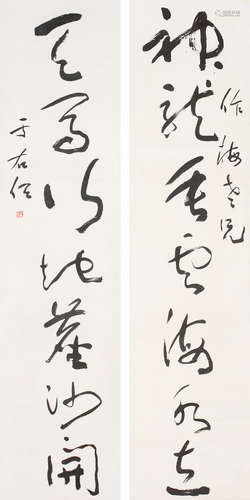 神龍垂雲海水立
作海老兄
天馬行地塵沙開
于右任